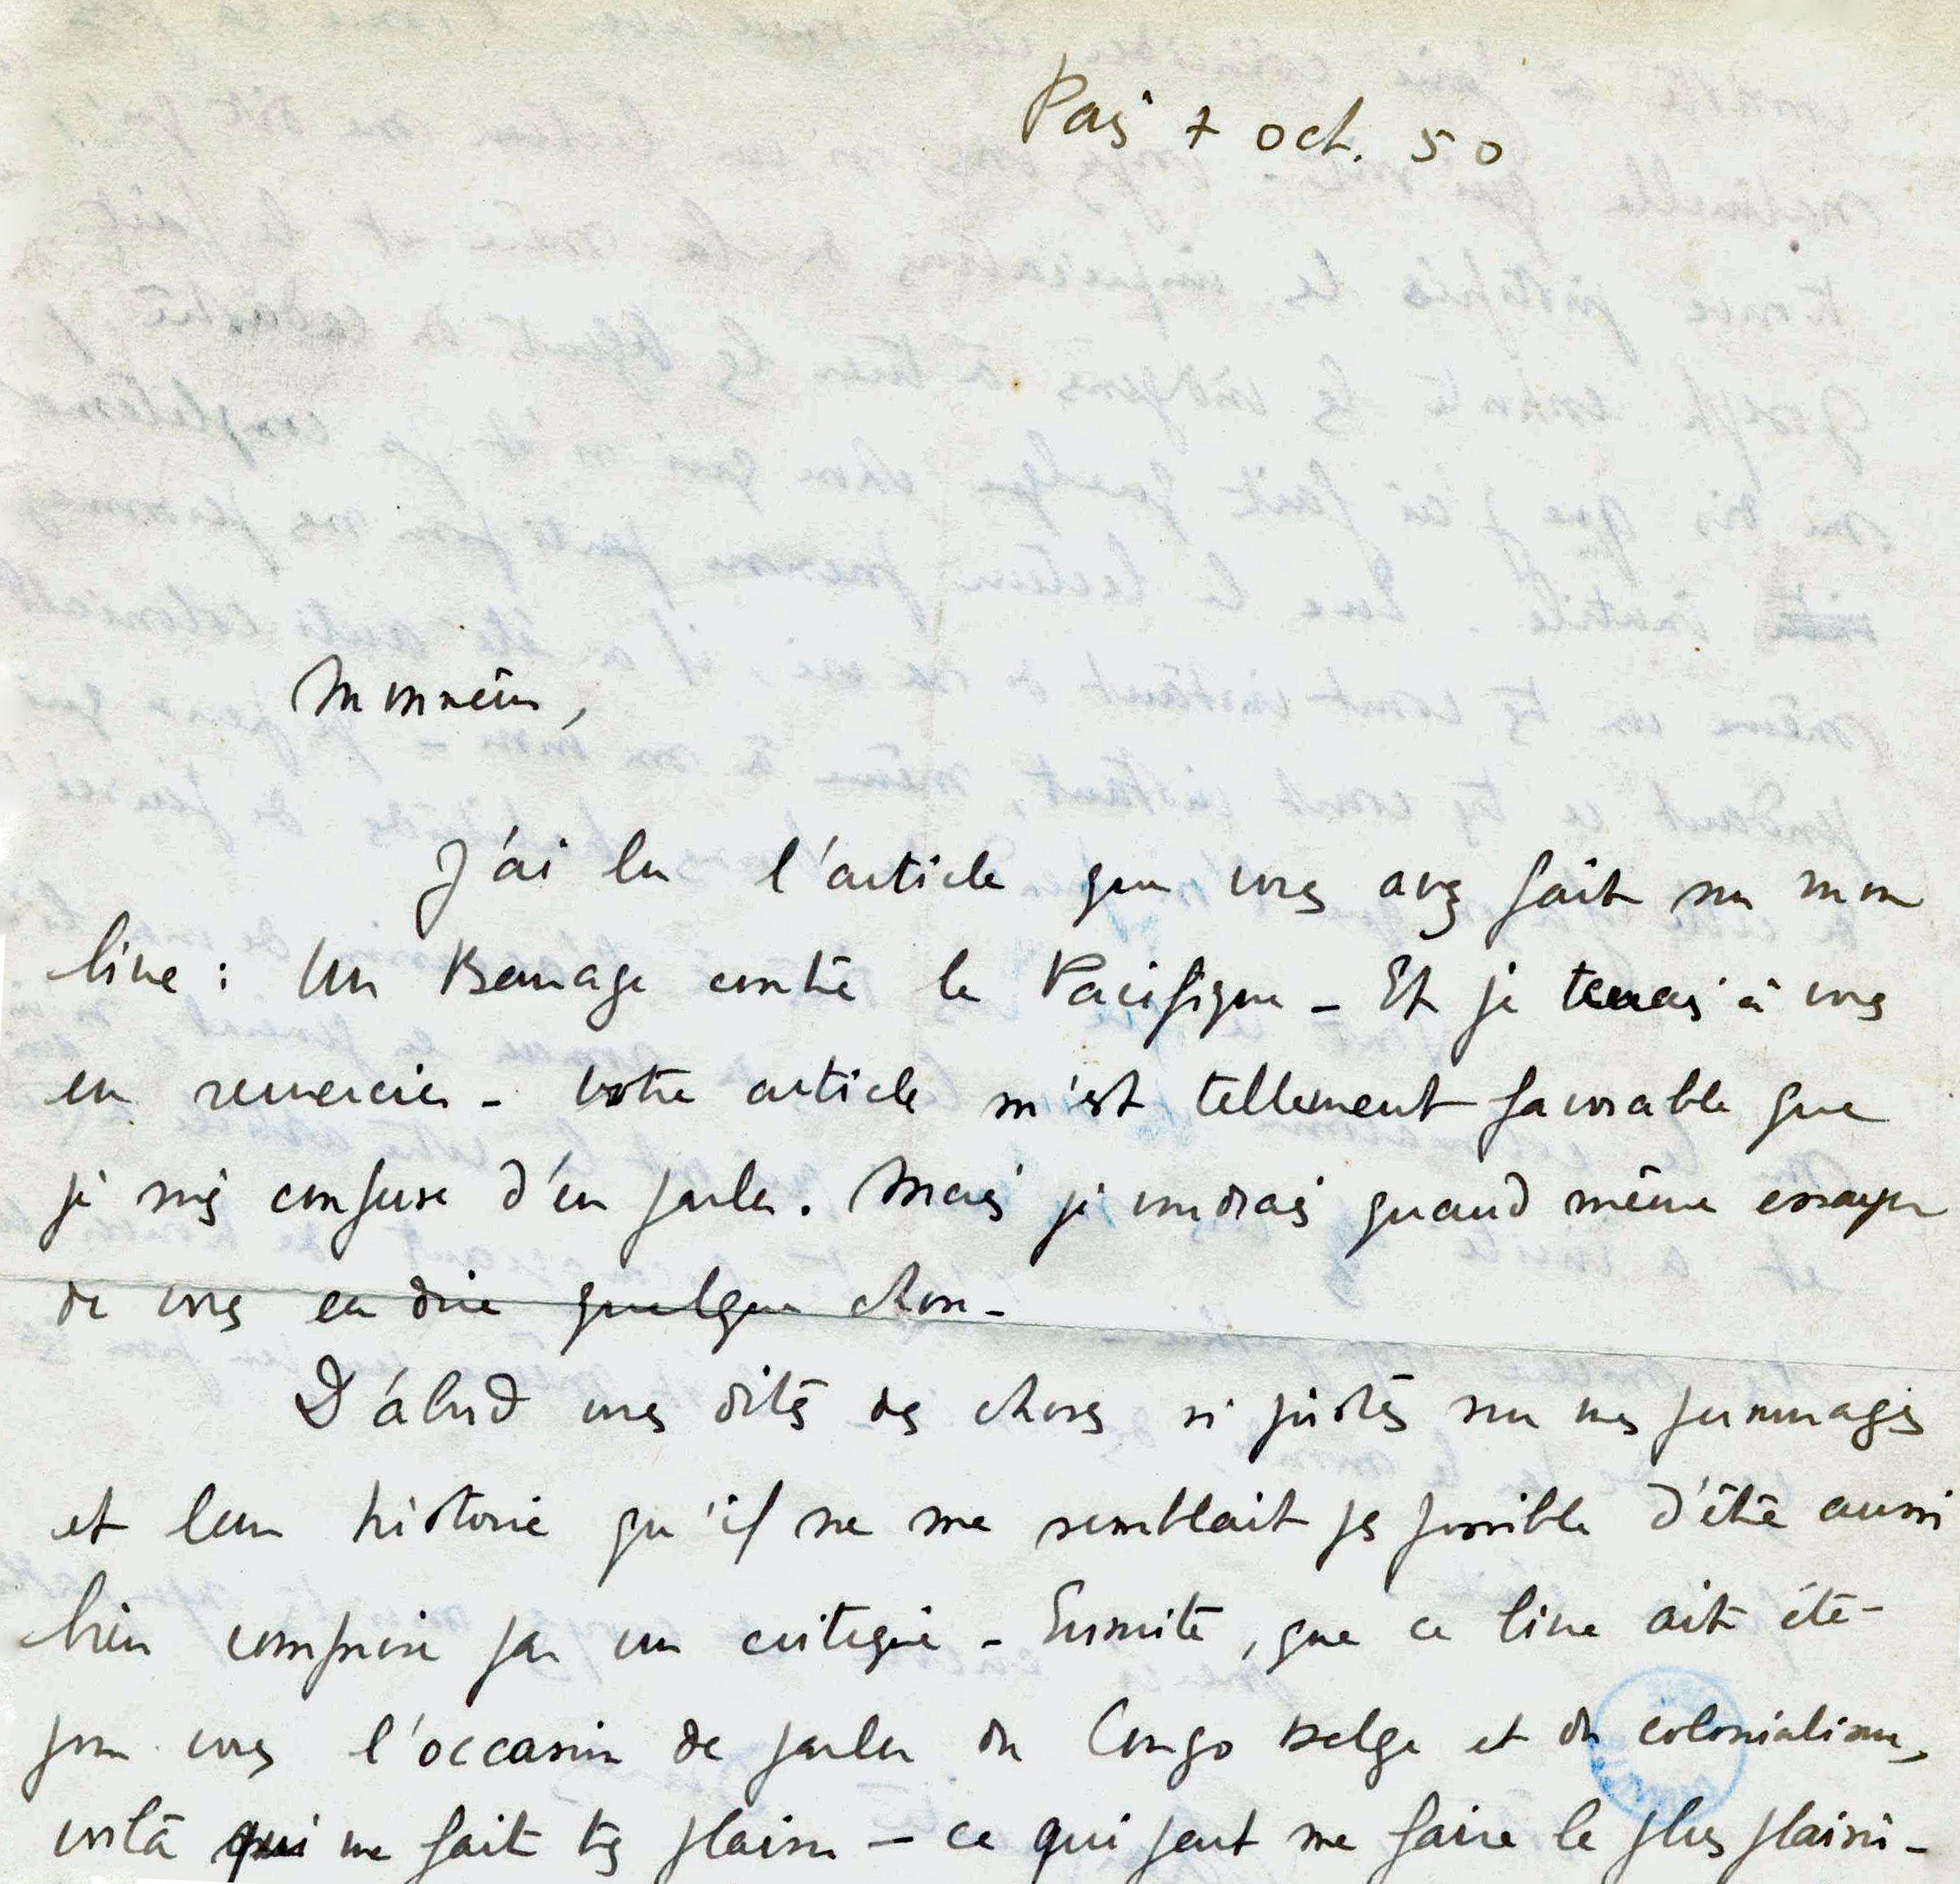 Paris 7 oct. 50
Monsieur,
J'ai lu l'article que vous avez fait sur mon
livre : Un Barrage contre le Pacifique – Et je tenais à vous
en remercier – votre article m'est tellement favorable que
je suis confuse d'en parler. Mais je voudrais quand même essayer
de vous en dire quelque chose –
D'abord vous dites des choses si justes sur mes personnages
et leur histoire qu'il ne me semblait pas possible d'être aussi
bien comprise par un critique – Ensuite, que ce livre ait été
pour vous l'occasion de parler du Congo Belge et du colonialisme,
voilà qui me fait très plaisir – ce qui peut me faire le plus plaisir –